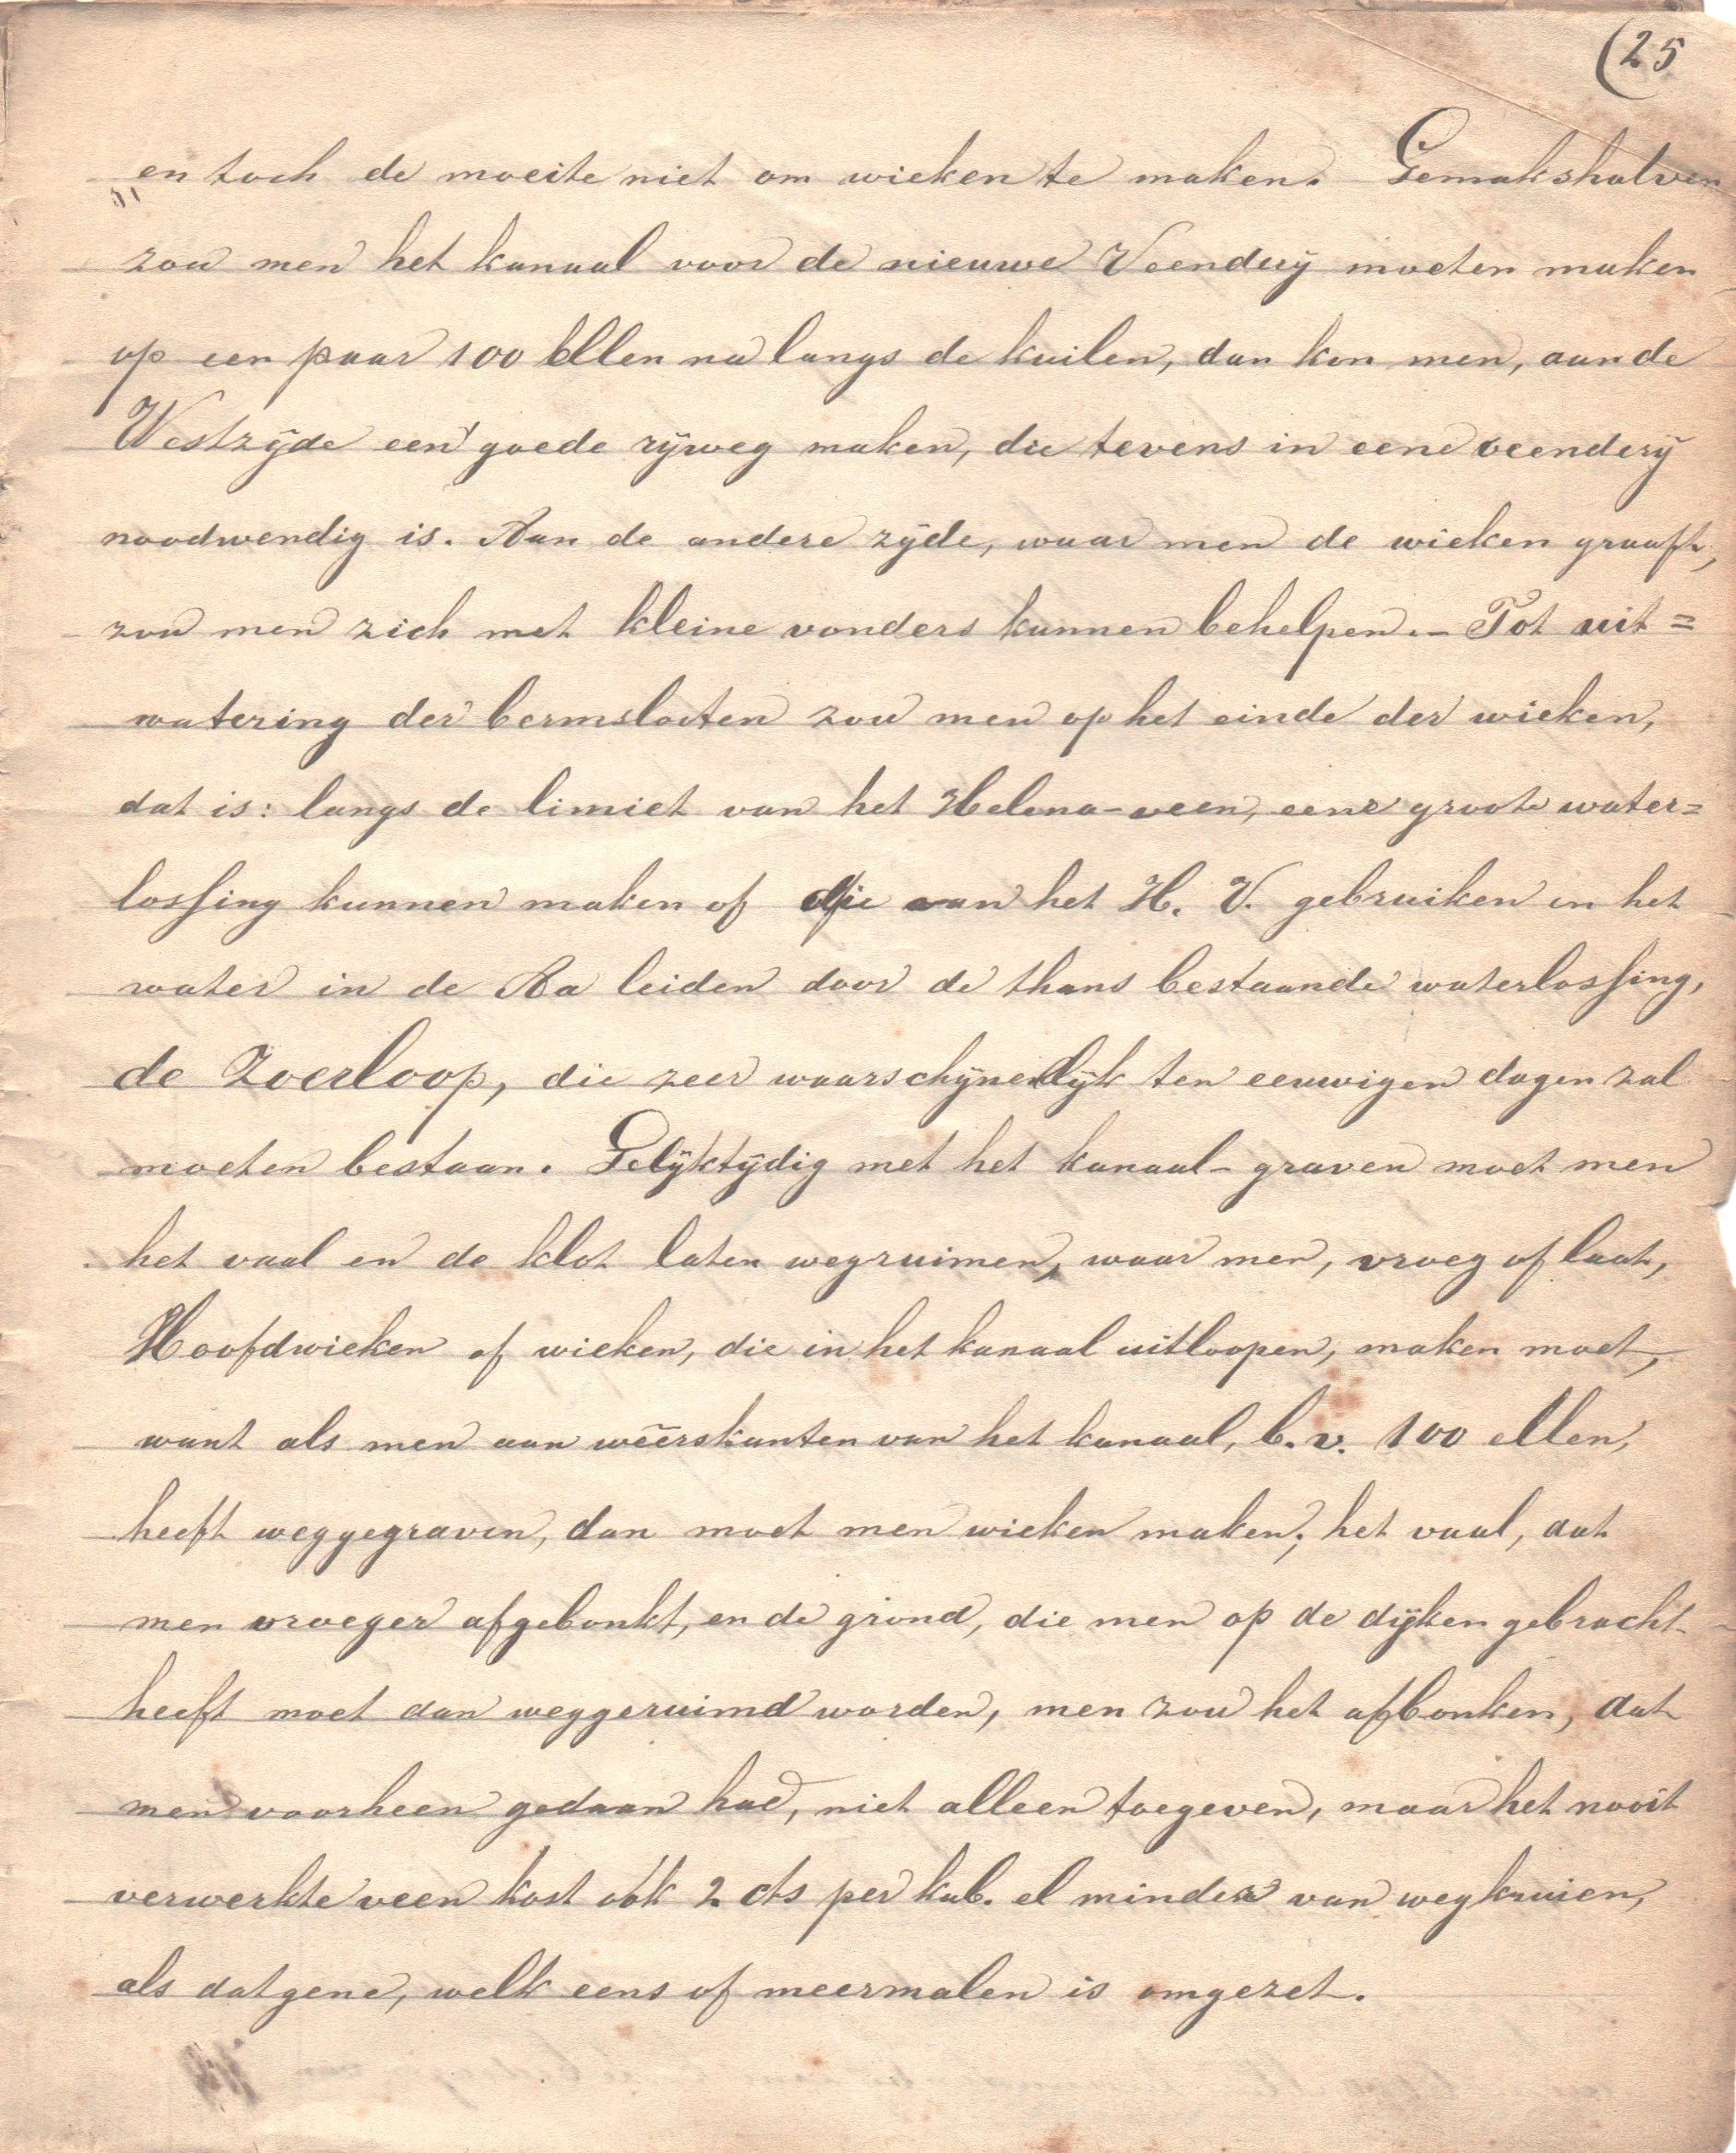 (25
en toch de moeite niet om wieken te maken. Gemakshalven
zou men het kanaal voor de nieuwe Veenderij moeten maken
op een paar 100 Ellen na langs de kuilen, dan kon men, aan de
Westzijde een' goede rijweg maken, die tevens in eene veenderij
noodwendig is. Aan de andere zijde, waar men de wieken graaft,
zou men zich met kleine vonders kunnen behelpen. – Tot uit=
watering der bermslooten zou men op het einde der wieken,
dat is: langs de limiet van het Helena-veen, eene groote water=
lossing kunnen maken of die van het H. V. gebruiken en het
water in de Aa leiden door de thans bestaande waterlossing,
de Zoerloop, die zeer waarschijnelijk ten eeuwigen dagen zal
moeten bestaan. Gelijktijdig met het kanaal-graven moet men
het vaal en de klot laten wegruimen, waar men, vroeg of laat,
Hoofdwieken of wieken, die in het kanaal uitloopen, maken moet,
want als men aan weêrskanten van het kanaal, b. v. 100 ellen,
heeft weggegraven, dan moet men wieken maken; het vaal, dat
men vroeger afgebonkt, en de grond, die men op de dijken gebracht
heeft moet dan weggeruimd worden, men zou het afbonken, dat
men voorheen gedaan had, niet alleen toegeven, maar het nooit
verwerkte veen kost óók 2 cts per kub. el minder van wegkruien,
als datgene, welk eens of meermalen is omgezet.